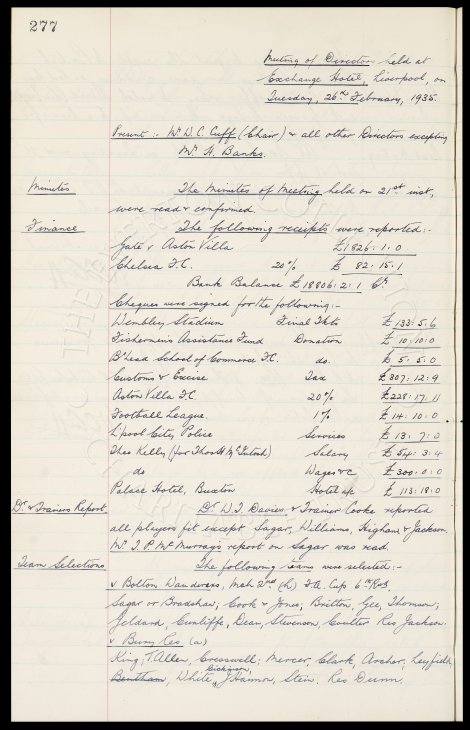 277
Meeting of Directors held at
Exchange Hotel, Liverpool, on
Tuesday, 26th February, 1935.
Present :- Mr W. C. Cuff (Chair) & all other Directors excepting
Mr. A. Banks.
Minutes The Minutes of Meeting held on 21st inst,
were read & confirmed.
Finance The following receipts were reported:-
Gate v Aston Villa £1826 : 1. 0
Chelsea F.C. 20% £ 82. 15. 1
Bank Balance £18806: 2: 1 Cr
Cheques were signed for the following:-
Wembley Stadium Final Tkts £ 133: 5. 6
Fishermens Assistance Fund Donation £ 10: 10: 0
B'head School of Commerce F.C. do. £ 5. 5. 0
Customs & Excise Tax £307: 12: 9
Aston Villa F.C. 20% £228: 17. 11
Football League. 1% £ 14: 10. 0
L'pool City Police Services £ 13: 7: 0
Theo Kelly (for Thos H McIntosh) Salary £ 54: 3: 4
do Wages &c £ 300: 0: 0
Palace Hotel, Buxton Hotel a/c £ 113: 18: 0
Dr. & Trainers Report Dr. W. J. Davies & Trainer Cooke reported
all players fit except Sagar, Williams, Higham & Jackson.
Mr. T. P. McMurray's report on Sagar was read.
Team Selections The following teams were selected:-
v Bolton Wanderers, Mch 2nd (h) F.A. Cup 6th Rnd.
Sagar or Bradshaw; Cook & Jones; Britton, Gee, Thomson;
Geldard, Cunliffe, Dean, Stevenson, Coulter Res Jackson.
v Bury Res (a)
King; T. Allen, Cresswell; Mercer, Clark, Archer, Leyfield,
Bentham, White, Dickinson, J. Hannon, Stein. Res Dunn.